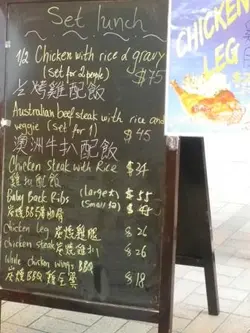 Set lunch
1/2 Chicken with rice & gravy
(Set for 2 people) $75
烤雞配飯
Australian beef steak with rice and
veggie (Set for 1) $45
澳洲牛扒配飯
Chicken steak with Rice $34
雞扒配飯
Baby Back Ribs (large) $55
炭燒BB (small) $
Chicken Leg 炭燒雞腿 $26
Chicken steak 炭燒雞扒 $26
Whole chicken wings BBQ
炭燒BBQ $18
CHICKEN
LEG